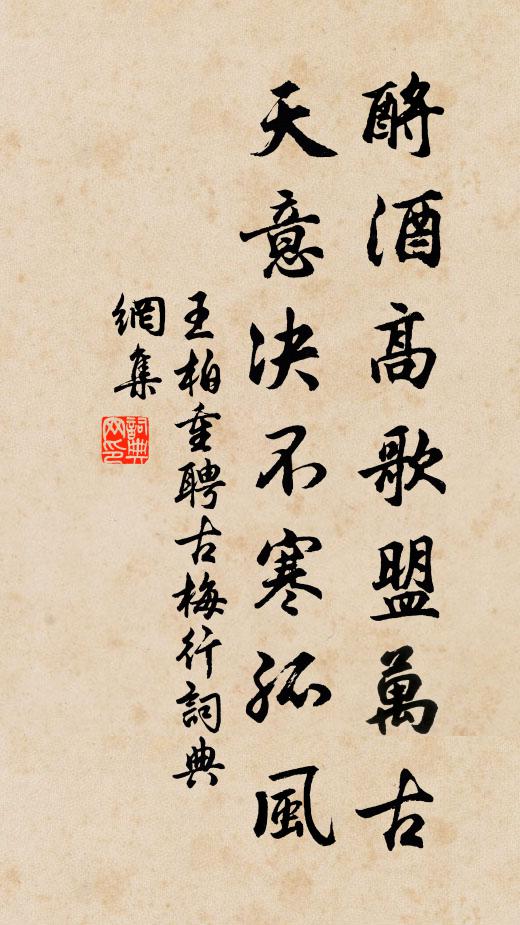 酹酒高歌盟萬古
天意決不寒孤風
王柏重聘古梅行詞典
網集
詞典
网印